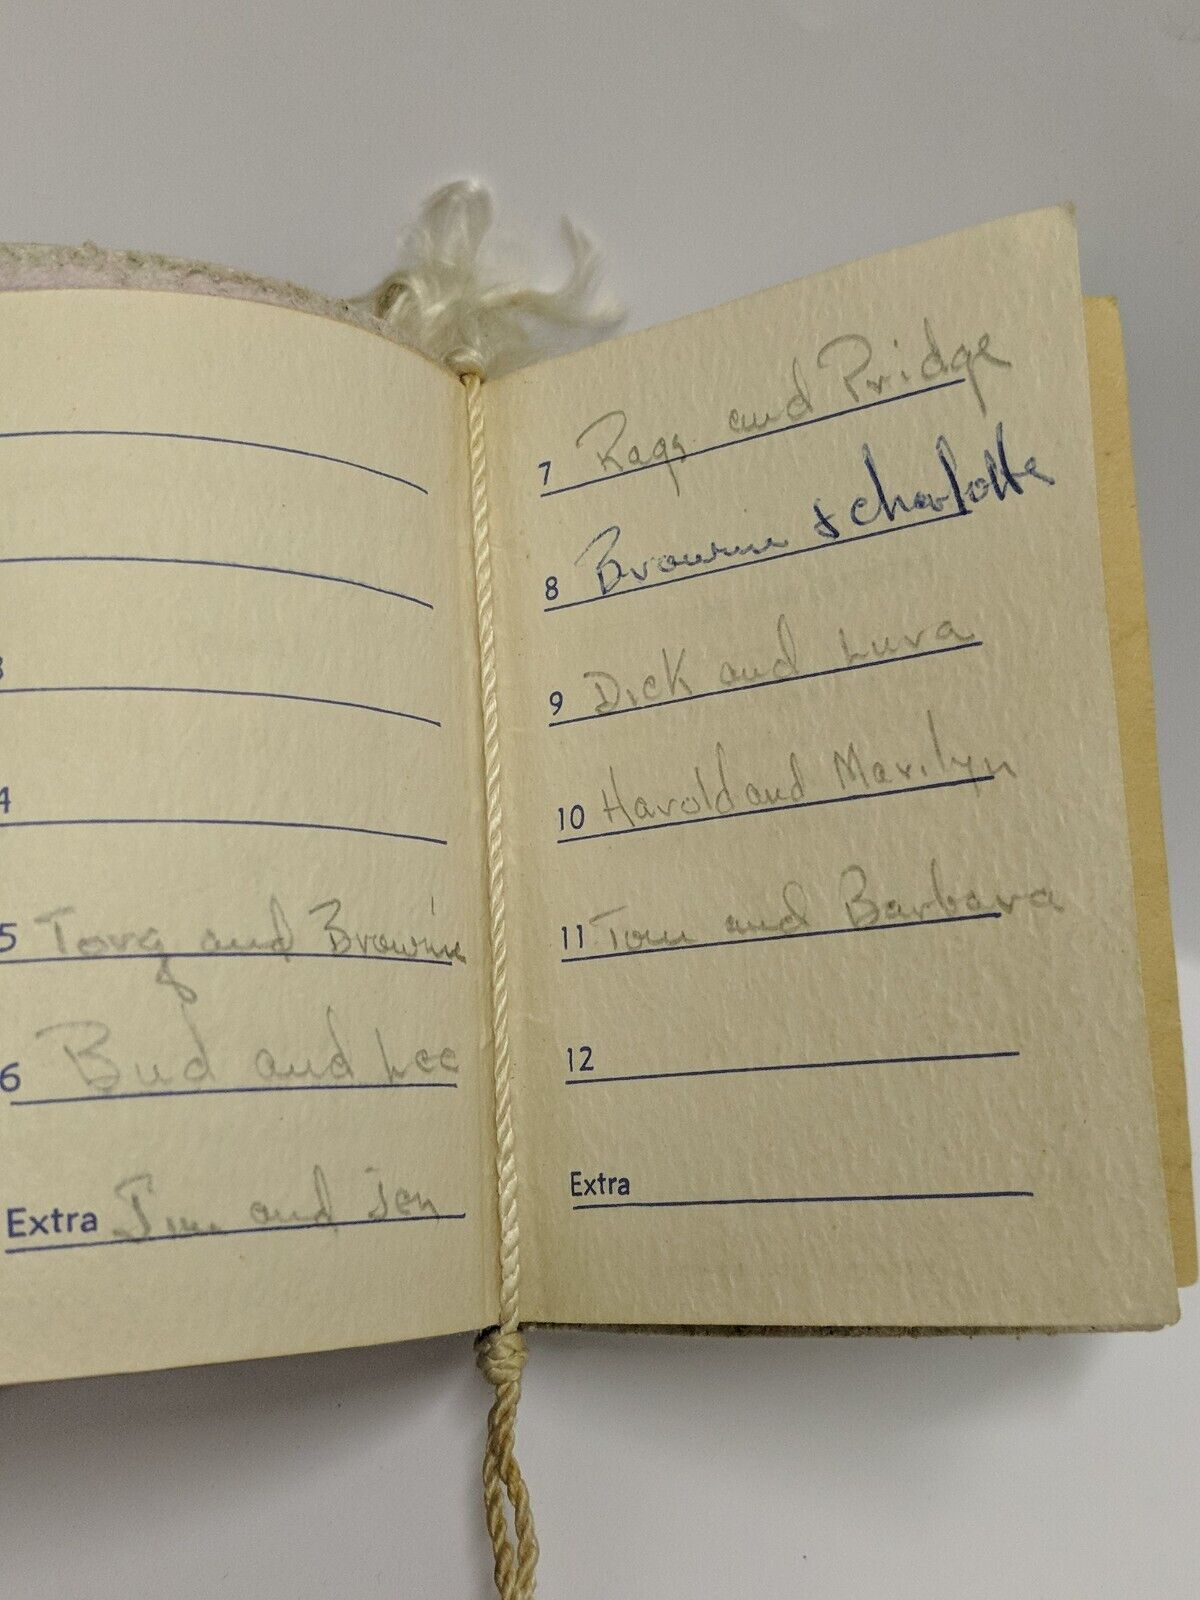 3
4
5 Torg and Brownie
6 Bud and Lee
Extra Jim and Jen
7 Rags and Pridge
8 Brownie & Charlotte
9 Dick and Luva
10 Harold and Marilyn
11 Tom and Barbara
12
Extra